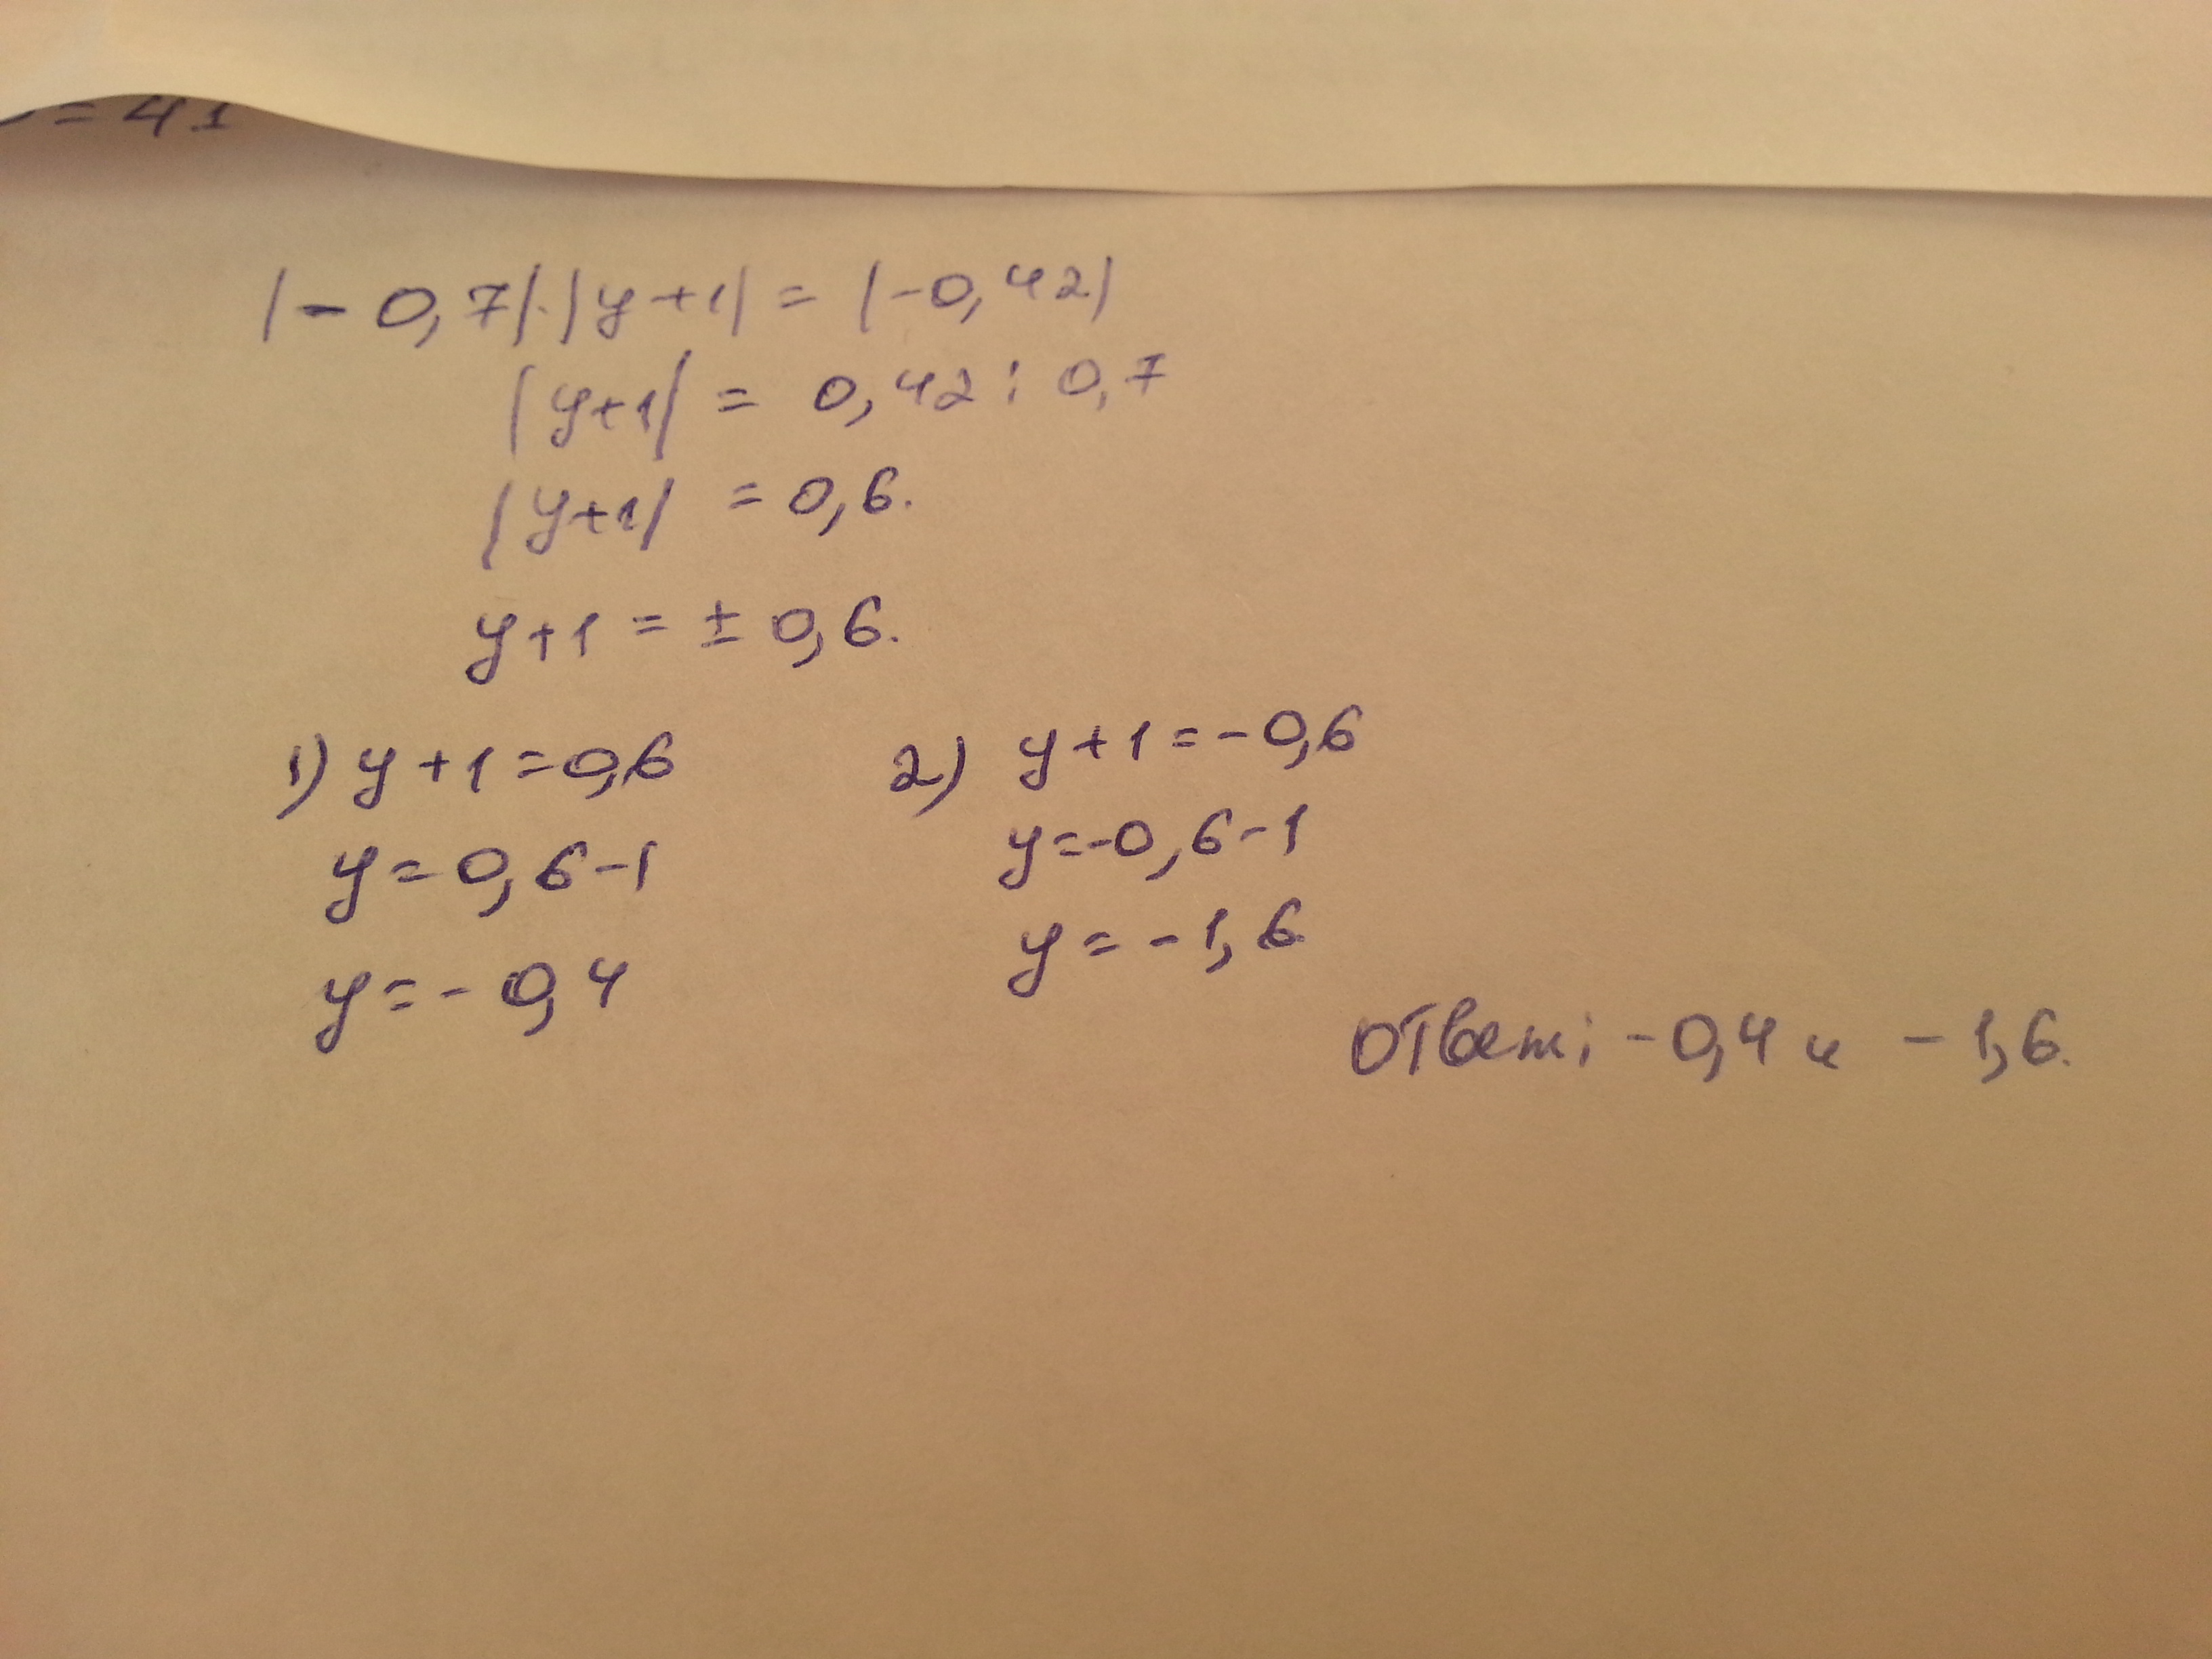 = 41
|-0,7|·|y+1| = |-0,42|
|y+1| = 0,42 : 0,7
|y+1| = 0,6.
y+1 = ± 0,6.
1) y+1=0,6
y=0,6-1
y=-0,4
2) y+1=-0,6
y=-0,6-1
y=-1,6
Ответ: -0,4 и -1,6.